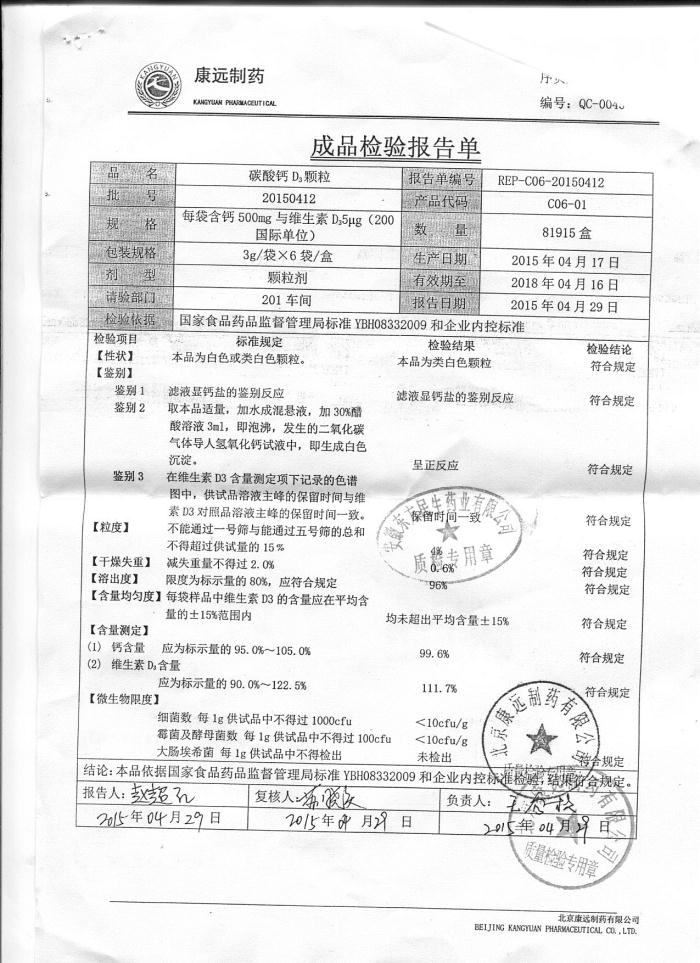 KANGYUAN
康远制药
KANGYUAN PHARMACEUTICAL
编号：QC-004
成品检验报告单
品 名 碳酸钙 D₃颗粒 报告单编号 REP-C06-20150412
批 号 20150412 产品代码 C06-01
规 格 每袋含钙 500mg 与维生素 D₃5μg（200 国际单位） 数 量 81915 盒
包装规格 3g/袋×6 袋/盒 生产日期 2015 年 04 月 17 日
剂 型 颗粒剂 有效期至 2018 年 04 月 16 日
请验部门 201 车间 报告日期 2015 年 04 月 29 日
检验依据 国家食品药品监督管理局标准 YBH08332009 和企业内控标准
检验项目 标准规定 检验结果 检验结论
【性状】 本品为白色或类白色颗粒。 本品为类白色颗粒 符合规定
【鉴别】
鉴别 1 滤液显钙盐的鉴别反应 滤液显钙盐的鉴别反应 符合规定
鉴别 2 取本品适量，加水成混悬液，加 30%醋
酸溶液 3ml，即泡沸，发生的二氧化碳
气体导人氢氧化钙试液中，即生成白色
沉淀。 呈正反应 符合规定
鉴别 3 在维生素 D3 含量测定项下记录的色谱
图中，供试品溶液主峰的保留时间与维
素 D3 对照品溶液主峰的保留时间一致。 保留时间一致 符合规定
【粒度】 不能通过一号筛与能通过五号筛的总和
不得超过供试量的 15% 4% 符合规定
【干燥失重】 减失重量不得过 2.0% 0.6% 符合规定
【溶出度】 限度为标示量的 80%，应符合规定 96% 符合规定
【含量均匀度】每袋样品中维生素 D3 的含量应在平均含
量的±15%范围内 均未超出平均含量±15% 符合规定
【含量测定】
(1) 钙含量 应为标示量的 95.0%～105.0% 99.6% 符合规定
(2) 维生素 D₃含量
应为标示量的 90.0%～122.5% 111.7% 符合规定
【微生物限度】
细菌数 每 1g 供试品中不得过 1000cfu ＜10cfu/g
霉菌及酵母菌数 每 1g 供试品中不得过 100cfu ＜10cfu/g
大肠埃希菌 每 1g 供试品中不得检出 未检出 符合规定
结论：本品依据国家食品药品监督管理局标准 YBH08332009 和企业内控标准检验，结果符合规定。
报告人： 复核人： 负责人：
2015 年 04 月 29 日 2015 年 04 月 29 日 2015 年 04 月 29 日
质检专用章
北京康远制药有限公司
质量检验专用章
质量检验专用章
北京康远制药有限公司
BEIJING KANGYUAN PHARMACEUTICAL CO.,LTD.